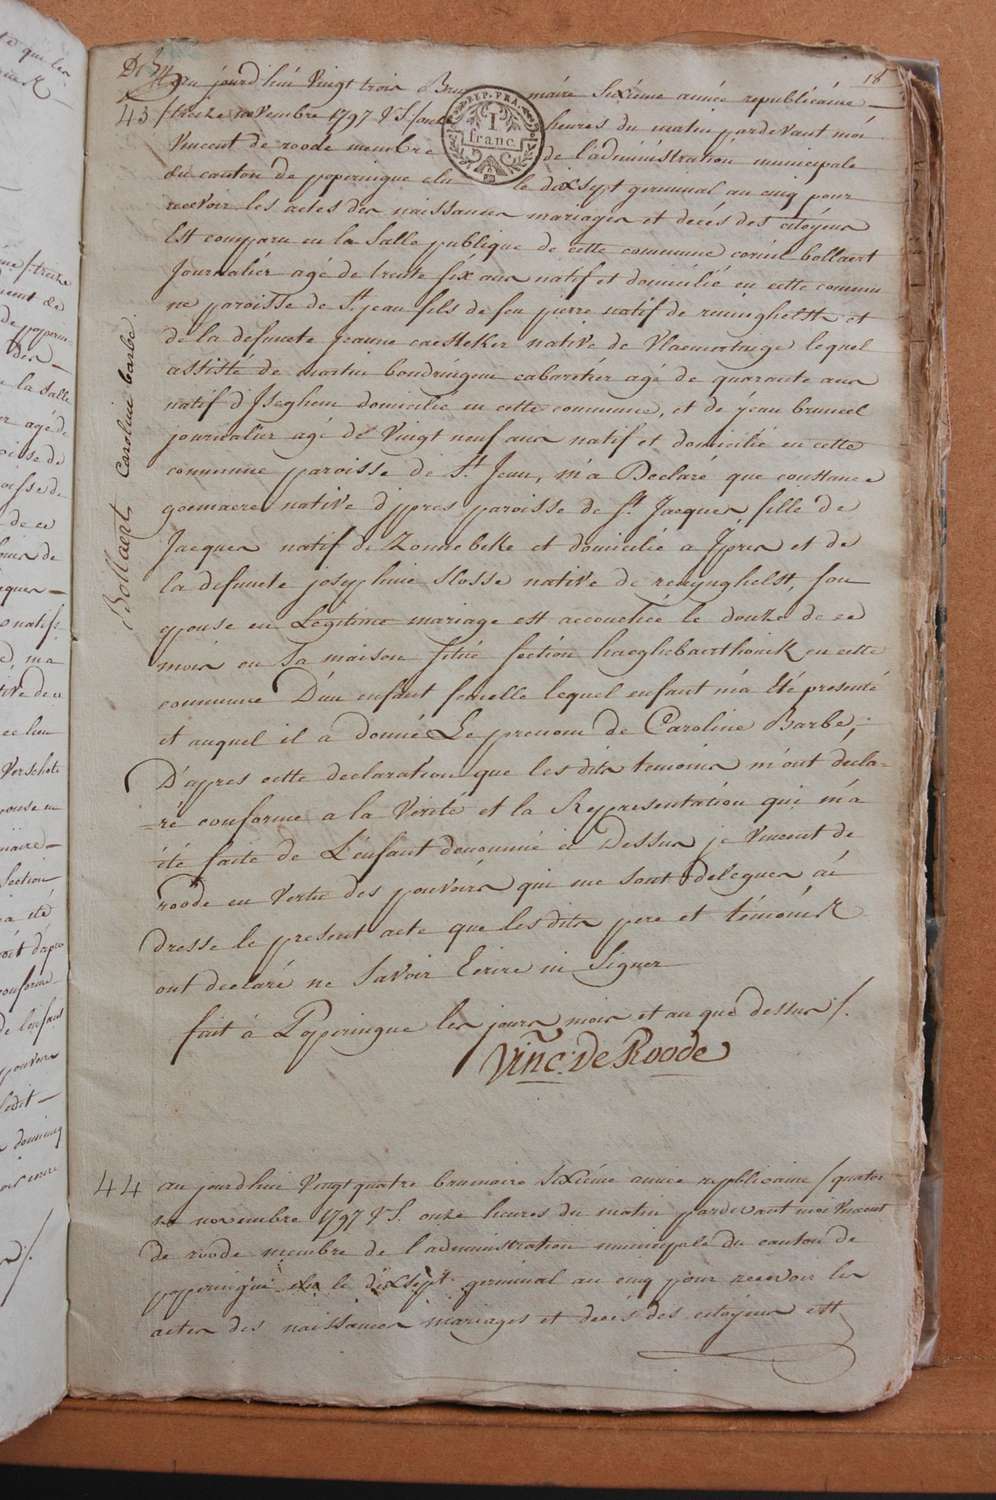 18
43
au jourd'hui Vingt trois Brumaire Sixième année republicaine
/treize novembre 1797 V S/ heures du matin pardevant moi
Vincent de roode membre de l'administration municipale
du canton de poperingue elu le dixsept germinal an cinq pour
recevoir les actes des naissances mariages et decès des citoyens
Est comparu en la Salle publique de cette commune cornil bollaert
Journalier agé de trente six ans natif et domicilié en cette commu
ne paroisse de St. jean fils de feu pierre natif de reninghelst et
de la defuncte jeanne caesteker native de Vlaemertinge lequel
assisté de martin boudringein cabaretier agé de quarante ans
natif d'Iseghem domicilié en cette commune, et de jean bruneel
journalier agé de Vingt neuf ans natif et domicilié en cette
commune paroisse de St Jean, m'a Declaré que constance
goemaere native d'ypres paroisse de St. Jacques fille de
Jacques natif de Zonnebeke et domicilié a Ypres et de
la defuncte josephine slosse native de renynghelst, son
epouse en Legitime mariage est accouchée le douze de ce
mois en Sa maison Située section haeghebaerthouck en cette
commune D'un enfant femelle lequel enfant m'a Eté presenté
et auquel il a donné Le prenom de Caroline Barbe,
D'apres cette declaration que les dits temoins m'ont decla-
-ré conforme a la Verité et la Representation qui m'a
été faite de L'enfant denommé ci Dessus je Vincent de
roode en Vertu des pouvoirs qui me sont deleguer ai
dresse le present acte que les dits pere et témoins
ont declaré ne Savoir Ecrire ni Signer
fait à Poperingue les jours mois et an que dessus /.
Vinc: De Roode
Bollaert Caroline barbe.
REP. FRA.
1
franc.
44
au jourd'hui Vingt quatre brumaire Sixième année republicaine /quator
ze novembre 1797 V S. onze heures du matin pardevant moi Vincent
de roode membre de l'administration municipale du canton de
poperingue elu le dixsept germinal an cinq pour recevoir les
actes des naissances mariages et decès des citoyens est